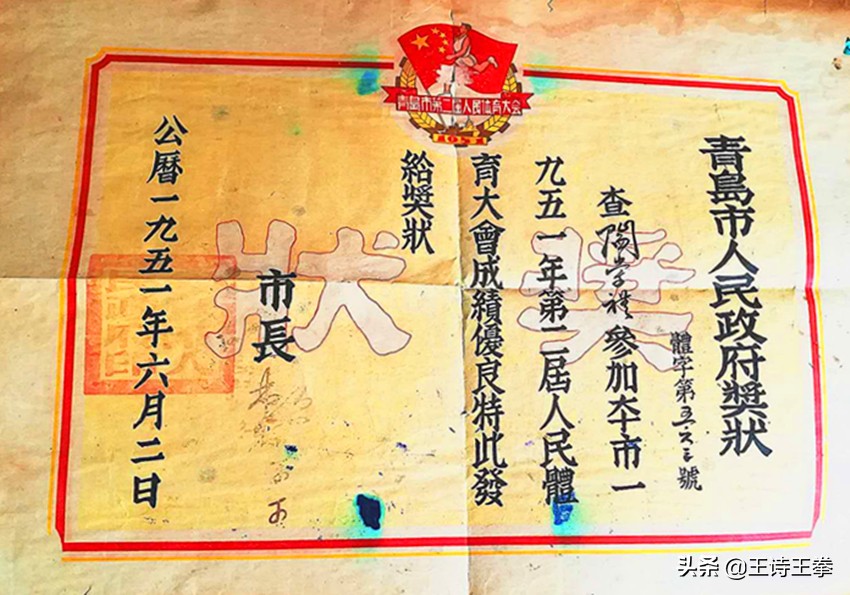 青島市第二届人民体育大会
1951
青島市人民政府獎狀
體字第五六三號
查陶学礼參加本市一
九五一年第二屆人民體
育大會成績優良特此發
給獎狀
市長
公曆一九五一年六月二日
獎狀
头条 @王诗王拳